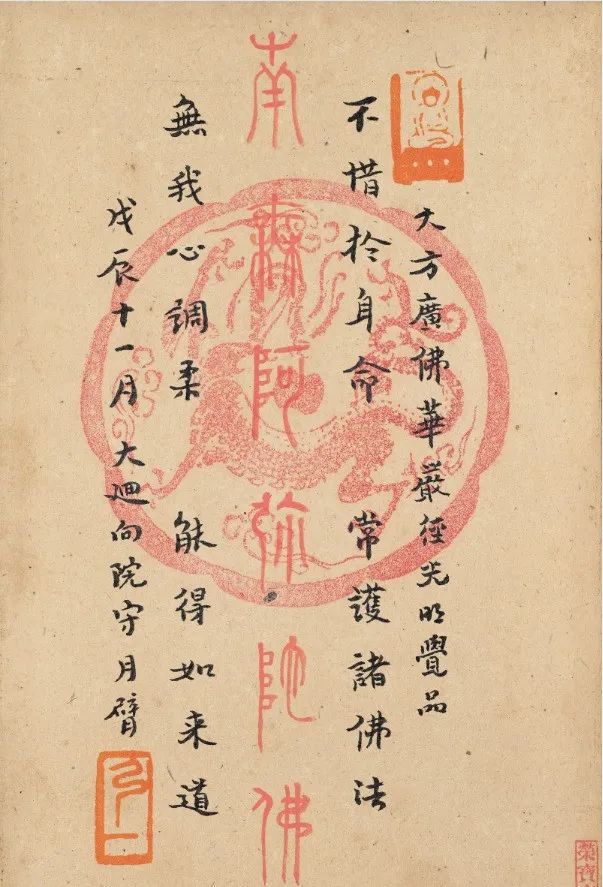 大方廣佛華嚴經光明覺品
不惜於身命 常護諸佛法
南無阿弥陀佛
無我心調柔 能得如来道
戊辰十一月大迴向院守月臂
榮寶